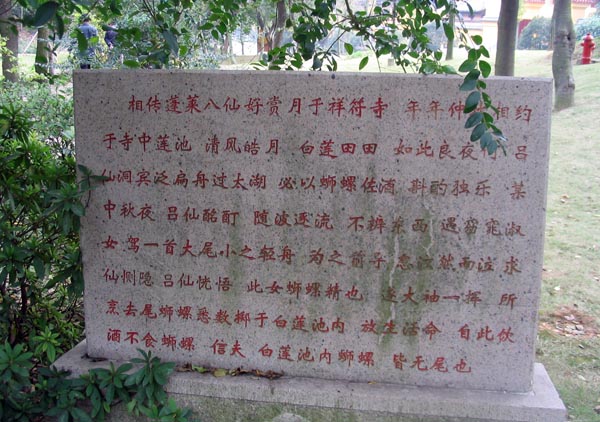 相传蓬莱八仙好赏月于祥符寺 年年仲 相约
于寺中莲池 清风皓月 白莲田田 如此良夜何 吕
仙洞宾泛扁舟过太湖 必以螄螺佐酒 斟酌独乐 某
中秋夜 吕仙酩酊 随波逐流 不辨东西 遇窈窕淑
女驾一首大尾小之轻舟 为之 子 然而泣 求
仙恻隐 吕仙恍悟 此女螄螺精也 遂大袖一挥 所
烹去尾螄螺悉数掷于白莲池内 放生活命 自此饮
酒不食螄螺 信夫 白莲池内螄螺 皆无尾也